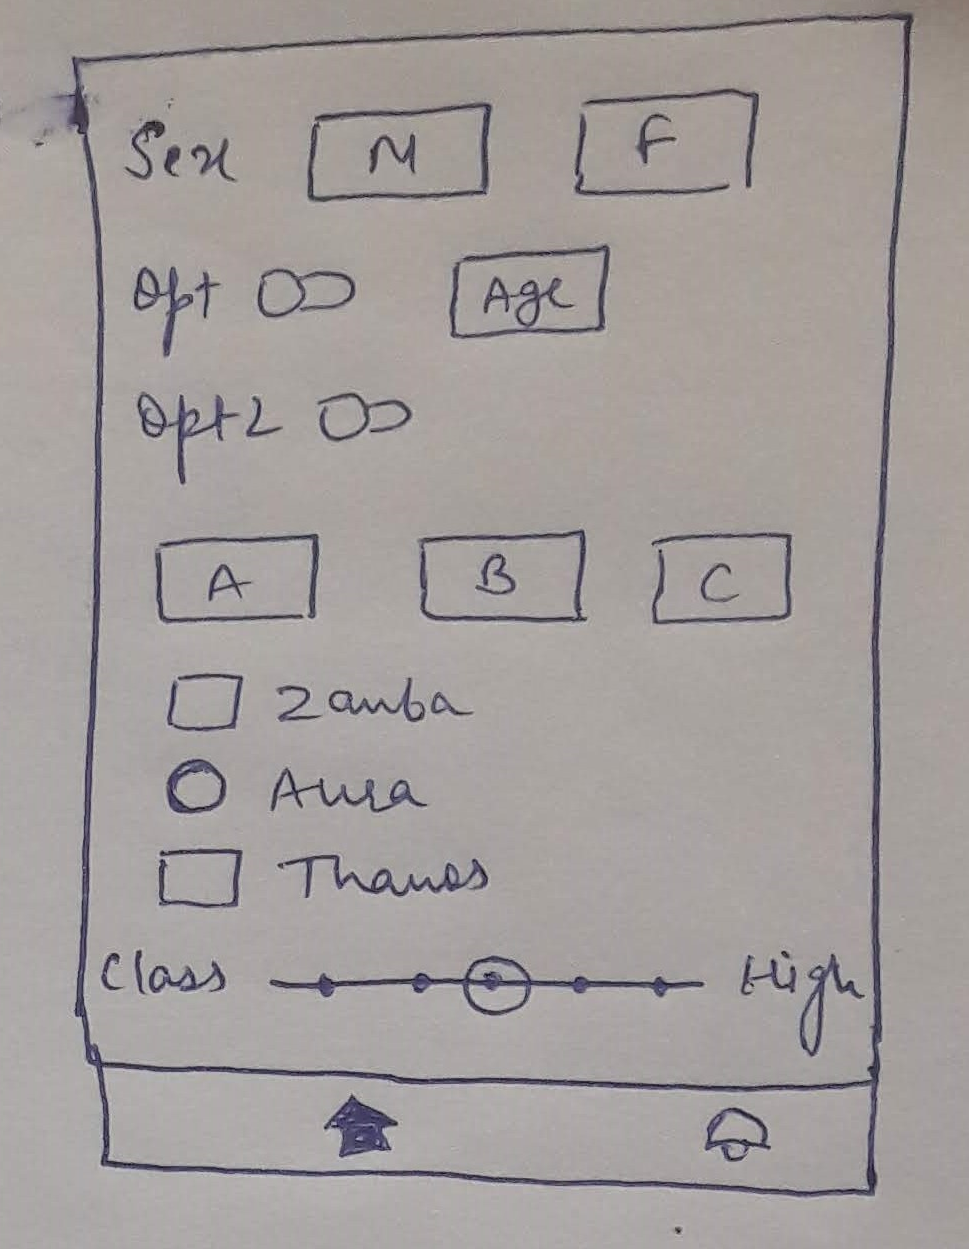 Sex M F
Opt Age
Opt2
A B C
Zamba
Aura
Thanos
Class High